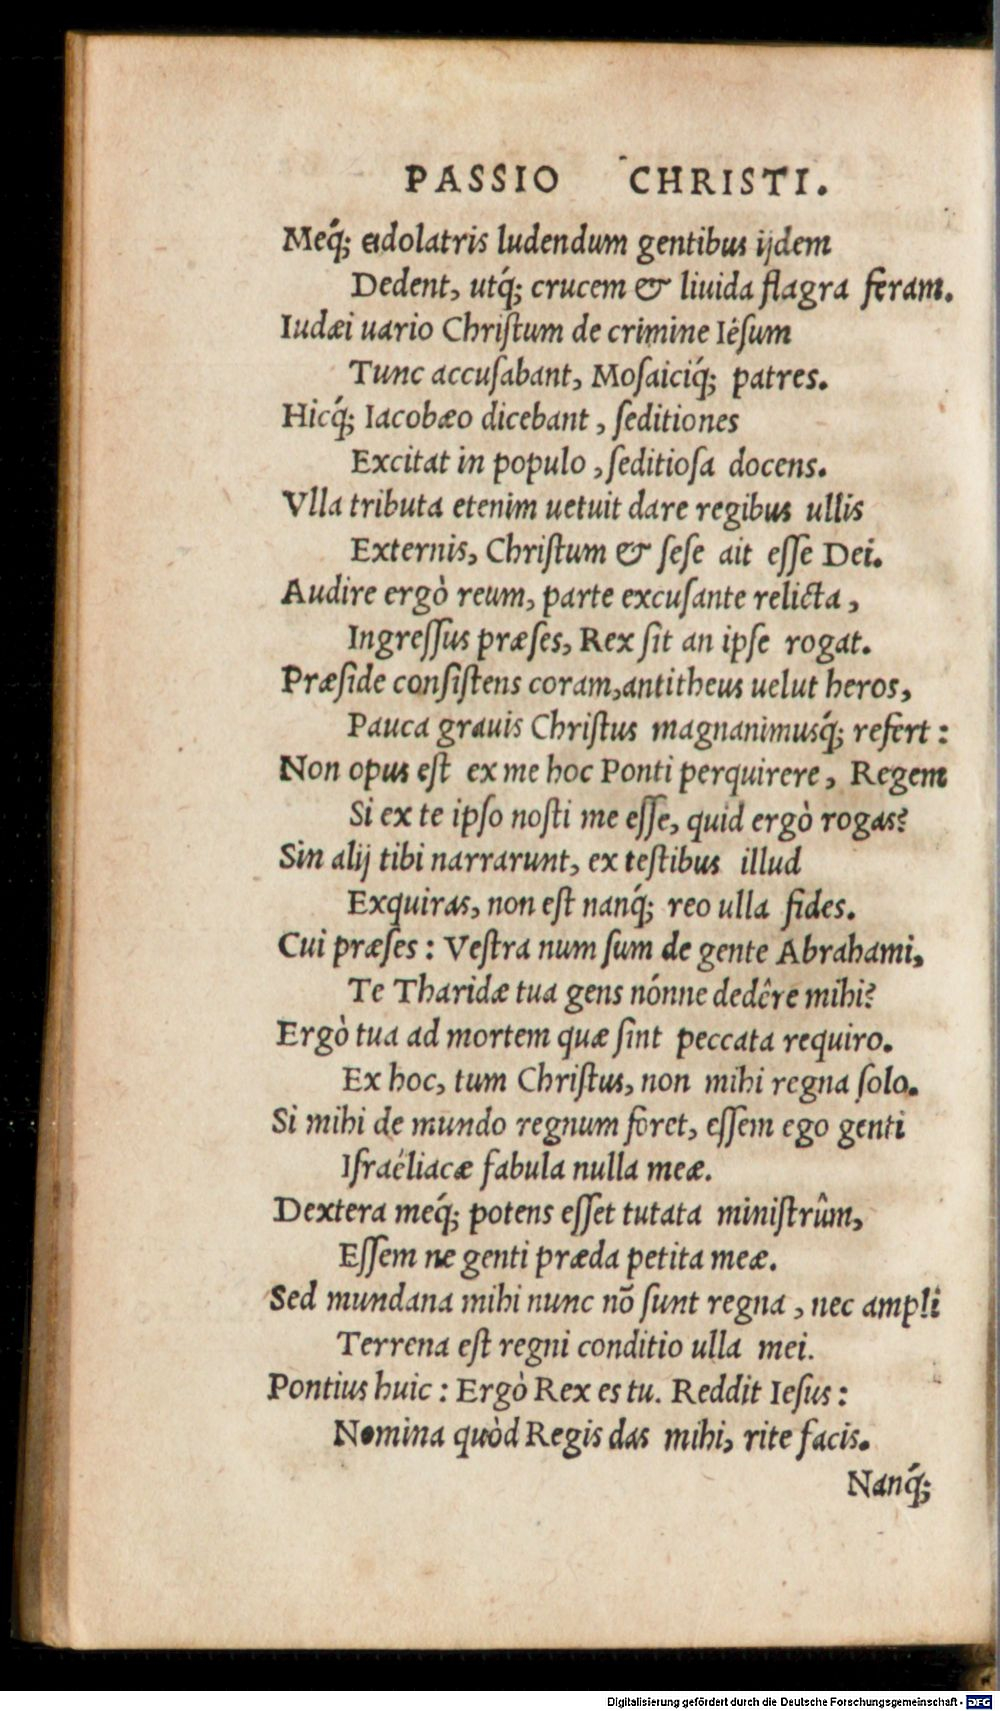 PASSIO CHRISTI.
Meq́; eidolatris ludendum gentibus ijdem
Dedent, utq́; crucem & liuida flagra feram.
Iudæi uario Chriſtum de crimine Iéſum
Tunc accuſabant, Moſaiciq́; patres.
Hicq́; Iacobæo dicebant, ſeditiones
Excitat in populo, ſeditioſa docens.
Vlla tributa etenim uetuit dare regibus ullis
Externis, Chriſtum & ſeſe ait eſſe Dei.
Audire ergò reum, parte excuſante relicta,
Ingreſſus præſes, Rex ſit an ipſe rogat.
Præſide conſiſtens coram, antitheus uelut heros,
Pauca grauis Chriſtus magnanimusq́; refert:
Non opus eſt ex me hoc Ponti perquirere, Regem
Si ex te ipſo noſti me eſſe, quid ergò rogas?
Sin alij tibi narrarunt, ex teſtibus illud
Exquiras, non eſt nanq́; reo ulla fides.
Cui præſes: Veſtra num ſum de gente Abrahami,
Te Tharidæ tua gens nónne dedêre mihi?
Ergò tua ad mortem quæ ſint peccata requiro.
Ex hoc, tum Chriſtus, non mihi regna ſolo.
Si mihi de mundo regnum foret, eſſem ego genti
Iſraéliacæ fabula nulla meæ.
Dextera meq́; potens eſſet tutata miniſtrûm,
Eſſem ne genti præda petita meæ.
Sed mundana mihi nunc nō ſunt regna, nec ampli
Terrena eſt regni conditio ulla mei.
Pontius huic: Ergò Rex es tu. Reddit Ieſus:
Nomina quòd Regis das mihi, rite facis.
Nanq́;
Digitalisierung gefördert durch die Deutsche Forschungsgemeinschaft - DFG